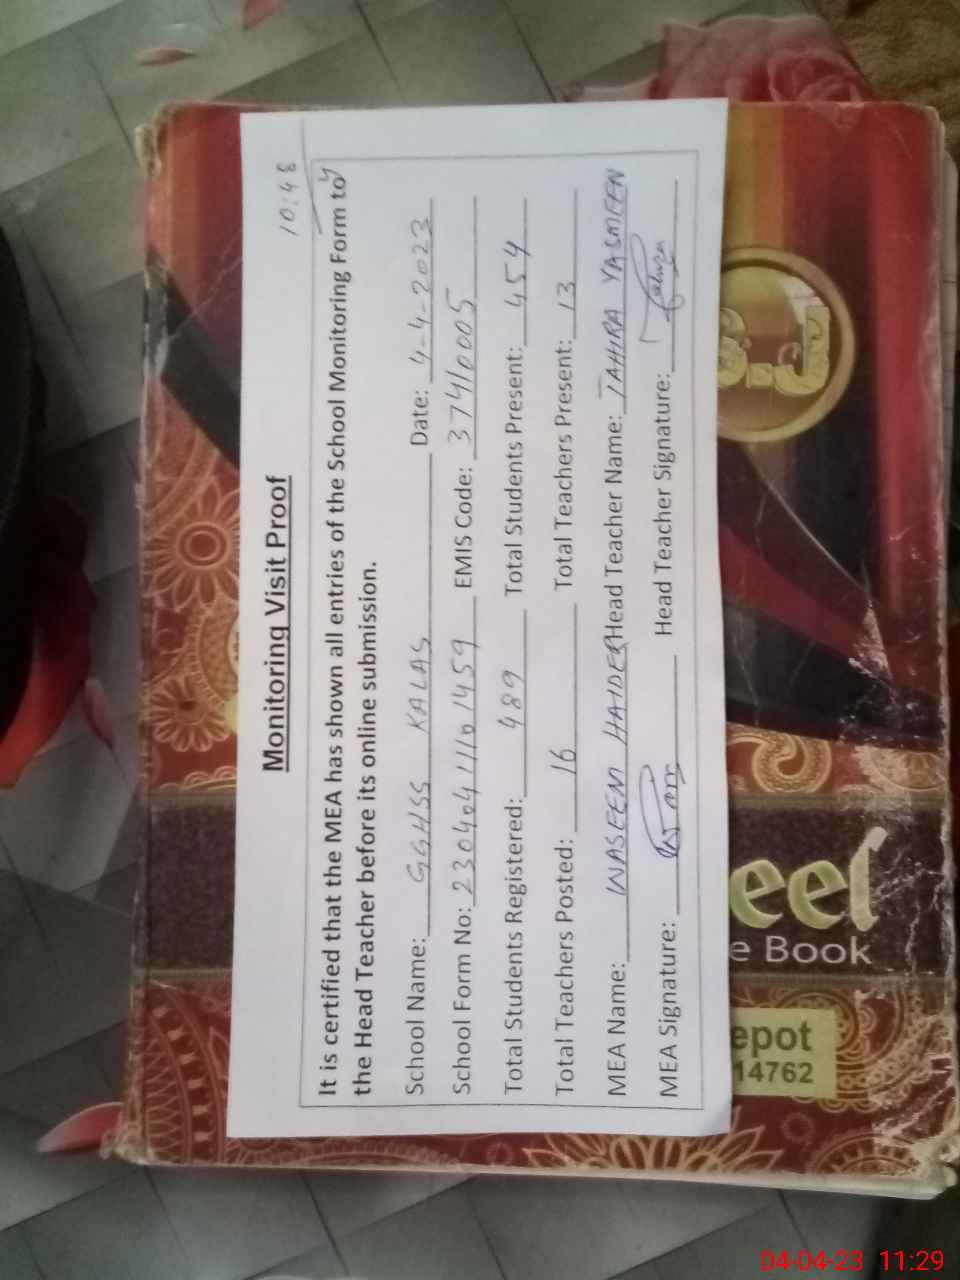 10:48
Monitoring Visit Proof
It is certified that the MEA has shown all entries of the School Monitoring Form to
the Head Teacher before its online submission.
School Name: GGHSS KALAS Date: 4-4-2023
School Form No: 23040411101459 EMIS Code: 37410005
Total Students Registered: 489 Total Students Present: 454
Total Teachers Posted: 16 Total Teachers Present: 13
MEA Name: WASEEM HAIDER Head Teacher Name: TAHIRA YASMEEN
MEA Signature: Head Teacher Signature:
eel
e Book
epot
14762
04-04-23 11:29